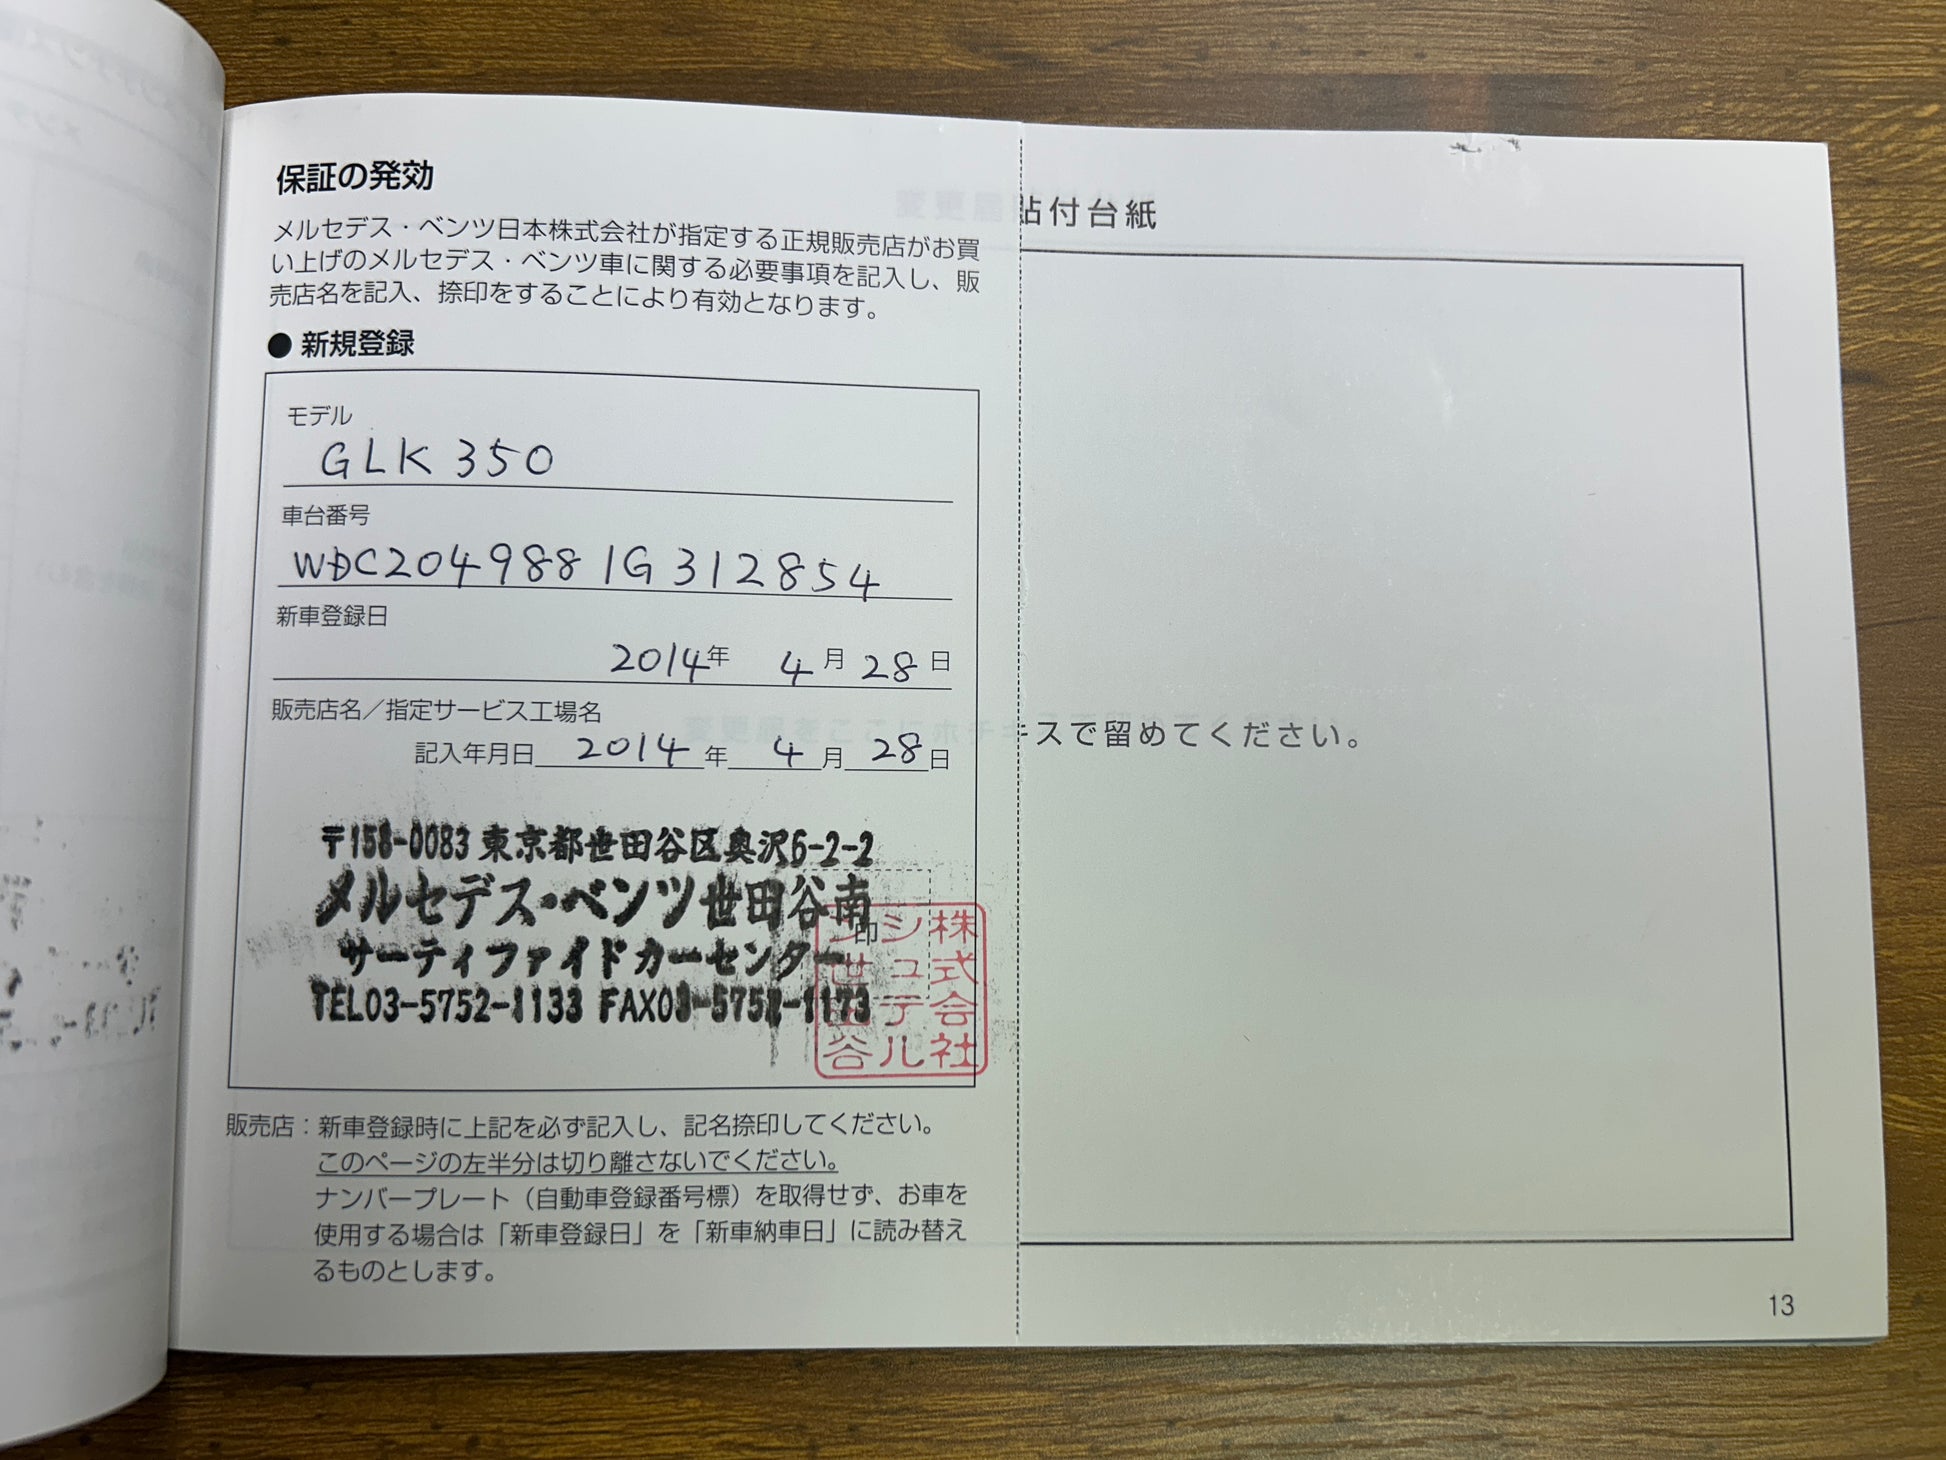 保証の発効
メルセデス・ベンツ日本株式会社が指定する正規販売店がお買
い上げのメルセデス・ベンツ車に関する必要事項を記入し、販
売店名を記入、捺印をすることにより有効となります。
● 新規登録
モデル
GLK 350
車台番号
WDC2049881G312854
新車登録日
2014年 4月 28日
販売店名／指定サービス工場名
記入年月日 2014年 4月 28日
〒158-0083 東京都世田谷区奥沢6-2-2
メルセデス・ベンツ世田谷南
サーティファイドカーセンター
TEL03-5752-1133 FAX03-5752-1173
印
株式会社
シュテル
ン世田谷
販売店：新車登録時に上記を必ず記入し、記名捺印してください。
このページの左半分は切り離さないでください。
ナンバープレート（自動車登録番号標）を取得せず、お車を
使用する場合は「新車登録日」を「新車納車日」に読み替え
るものとします。
貼付台紙
キスで留めてください。
13